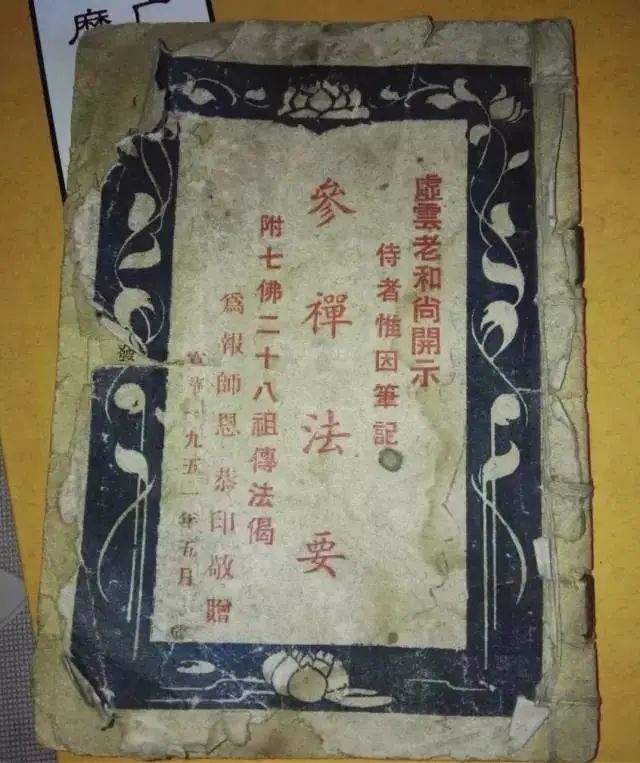 虛雲老和尚開示
侍者惟因筆記
參禪法要
附七佛二十八祖傳法偈
爲報師恩 恭印敬贈
一九五一年五月